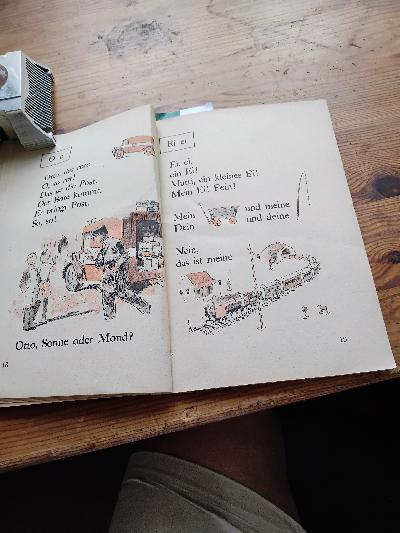 O o
O, so rot!
Das ist die Post.
Der Bote kommt.
Er bringt Post.
So, so!
Otto, Sonne oder Mond?
18
Ei ei
Ei, ei,
ein Ei!
Mutti, ein kleines Ei!
Mein Ei! Fein!
Mein und meine
Dein und deine
Nein,
das ist meine